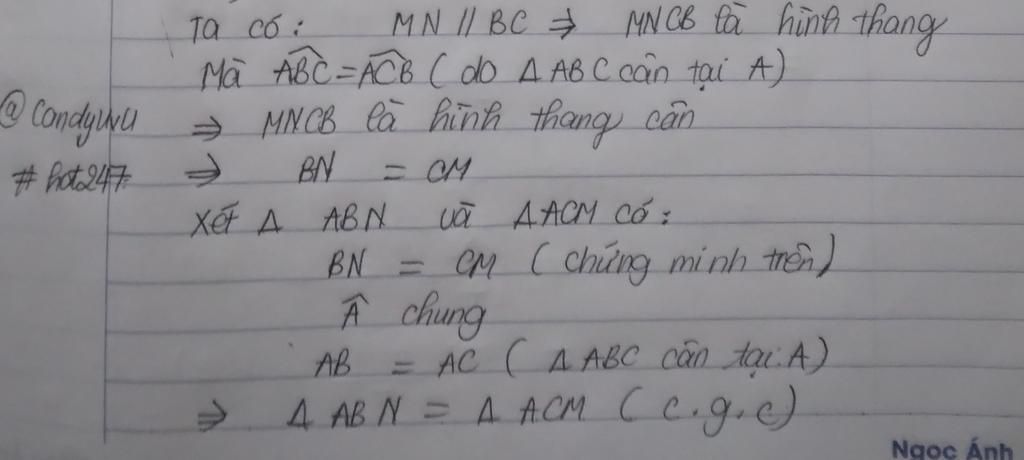 Ta có: MN // BC ⇒ MNCB là hình thang
Mà ABC = ACB ( do Δ ABC cân tại A)
@Candyuwu
⇒ MNCB là hình thang cân
# hot247
⇒ BN = CM
Xét Δ ABN và Δ ACM có:
BN = CM ( chứng minh trên)
Â chung
AB = AC ( Δ ABC cân tại A)
⇒ Δ ABN = Δ ACM ( c.g.c)
Ngọc Ánh